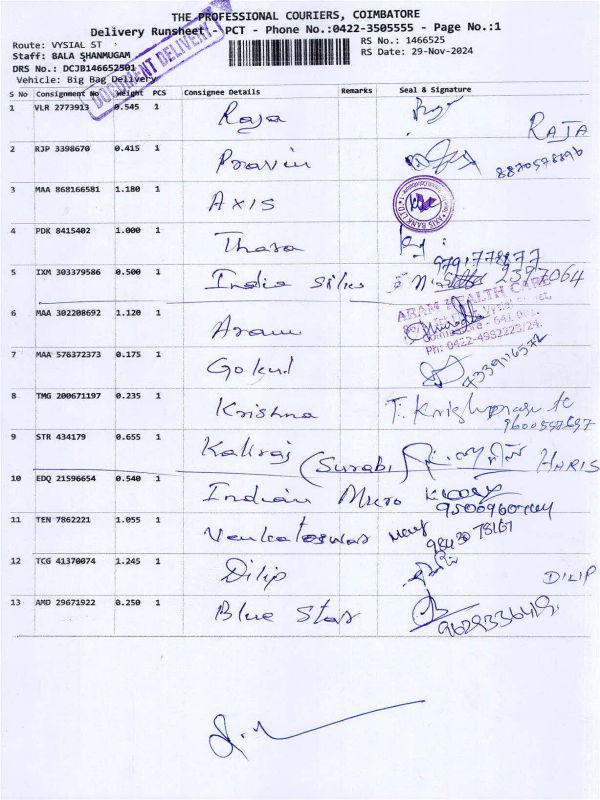 THE PROFESSIONAL COURIERS, COIMBATORE
Delivery Runsheet - PCT - Phone No.:0422-3505555 - Page No.:1
Route: VYSIAL ST
RS No.: 1466525
Staff: BALA SHANMUGAM
RS Date: 29-Nov-2024
DRS No.: DCJB146652501
Vehicle: Big Bag Delivery
DOCUMENT DELIVERY
S No Consignment No Weight PCS Consignee Details Remarks Seal & Signature
1 VLR 2773913 0.545 1 Raja RAJA
2 RJP 3398670 0.415 1 Pravin 8870578896
3 MAA 868166581 1.180 1 AXIS AXIS BANK LTD
4 PDK 8415402 1.000 1 Thara
9791778877
5 IXM 303379586 0.500 1 India Silks 2397064
ARAM HEALTH CARE
6 MAA 302208692 1.120 1 Aram
Ph: 0422-4982323/24.
7 MAA 576372373 0.175 1 Gokul 7339116572
8 TMG 200671197 0.235 1 Krishna
9600597697
9 STR 434179 0.655 1 Kaliraj (Surabi) HARIS
10 EDQ 21596654 0.540 1 Indian Micro
11 TEN 7862221 1.055 1 Venkateswar
98430 78167
12 TCG 41370074 1.245 1 Dilip DILIP
13 AMD 29671922 0.250 1 Blue Star
9629336419